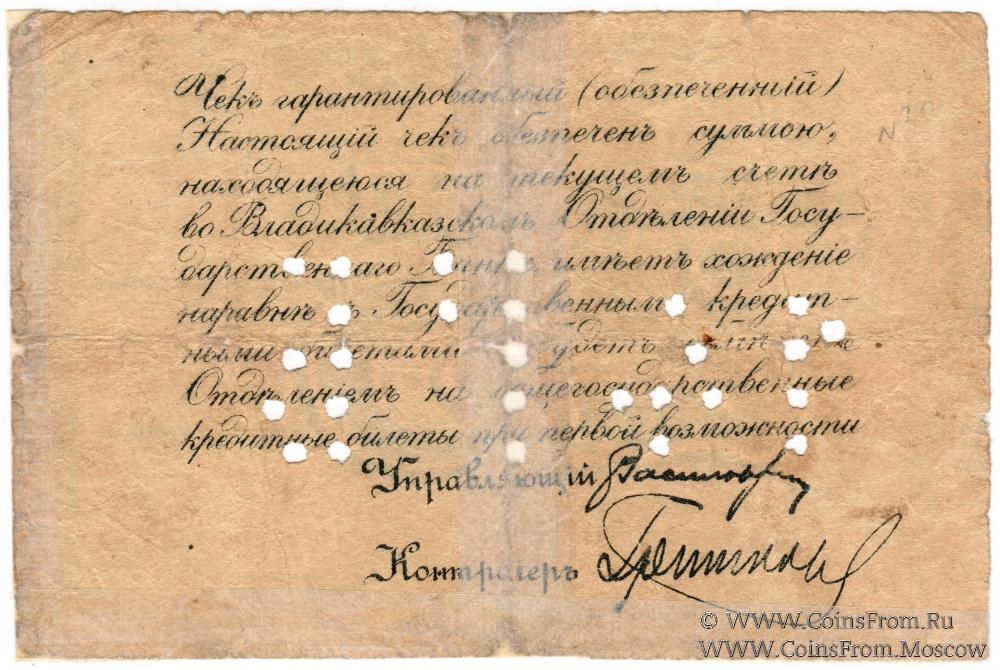 Чекъ гарантированный (обезпеченный)
Настоящій чекъ обезпеченъ суммою,
находящеюся на текущемъ счетѣ
во Владикавказскомъ Отдѣленіи Госу-
дарственнаго Банка имѣетъ хожденіе
наравнѣ съ Государственными кредит-
ными билетами будетъ
Отдѣленіемъ на общегосударственные
кредитные билеты при первой возможности
Управляющій
Контролеръ
№
© WWW.CoinsFrom.Ru
WWW.CoinsFrom.Moscow